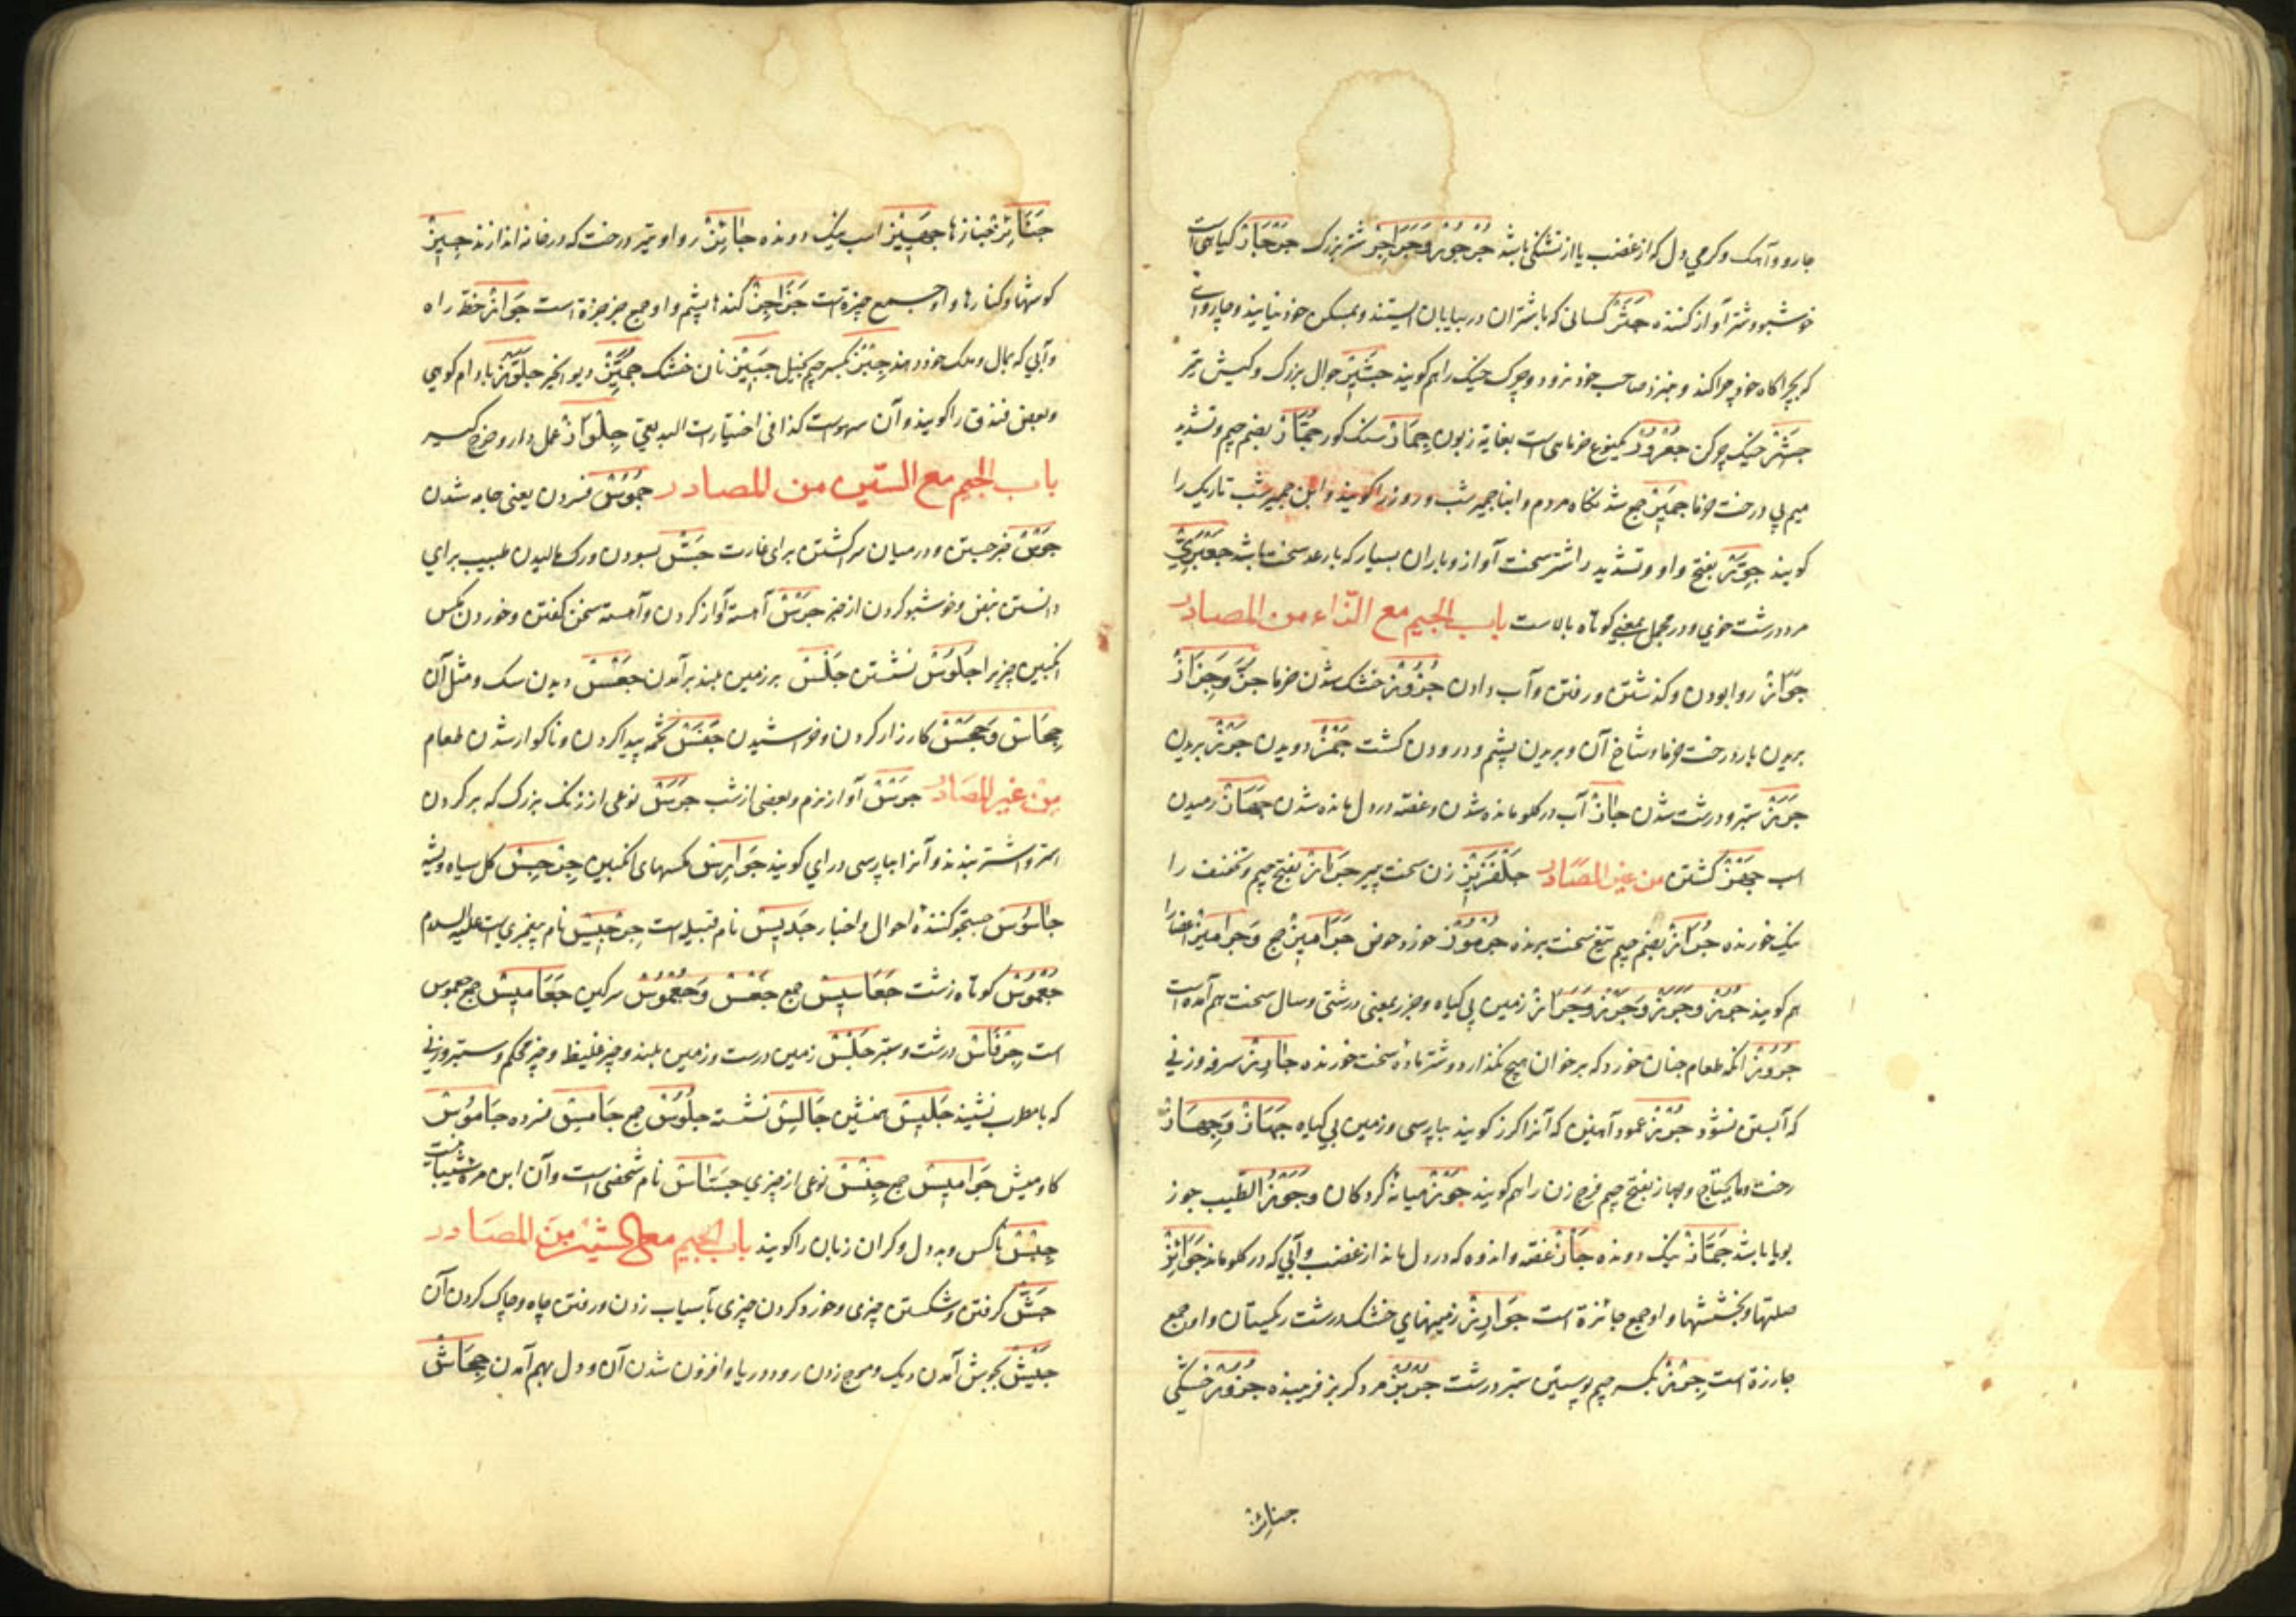 جارو و آهک و کرمی دل که از غضب یا از تشنگی باشد جُرْجُور وَجَرَاجِر شتر بزرک جَرْجَار کیاهی است
خوشبو و شتر آواز کننده جَشَر کسانی که با شتران در بیابان ایستند و بمسکن خود نیایند و چاروای
که بچراکاه خود چرا کند و بنزد صاحب خود نرود و چرک خیک را هم کویند جَشِیر جوال بزرک و کیش تیر
جَشِر خیک چرکن جُعْرُور یکنوع خرماهی است بغایة زبون جِمَار سنک کور جُمَّار بضم جیم و تشدید
میم پی درخت خرما جَمِیر جمع شدنکاه مردم و ابنا جمیر شب و روز را کویند و ابن جمیر شب تاریک را
کویند جِوَرّ بفتح واو و تشدید را شتر سخت آواز و باران بسیار که با رعد سخت باشد جَعْبَرِیّ
مرد درشت خوی و در مجمل بمعنی کوتاه بالاست باب الجیم مع الزّاء من المصادر
جَوَاز روا بودن و کذشتن و رفتن و آب دادن جُزُوز خشک شدن خرما جَزّ وَجِزَاز
بریدن بار درخت خرما و شاخ آن و بریدن پشم و درودن کشت جَمْز دویدن جَرْز بریدن
جَرَز ستبر و درشت شدن جَاز آب در کلو مانده شدن و غصّه در دل مانده شدن جَهَاز رمیدن
اسب جَهْز کشتن من غیر المصادر جَلْفَزِیز زن سخت پیر جَرَاز بفتح جیم و تخفیف را
نیک خورنده جُرَاز بضم جیم تیغ سخت برنده جُرْمُوز خورد حوض جَرَامِیز جمع وَجَرَامِیز اعضا را
هم کویند جُرْز وَجُرُز وَجَرْز وَجَرَز زمین بی کیاه و جرز بمعنی درشتی و سال سخت هم آمده است
جَرُوز انکه طعام چنان خورد که بر خوان هیچ نکذارد و شتر ماده سخت خورنده جَارِز سرفه و زنی
که آبستن نشود جُرْز عمود آهنین که آنرا کرز کویند بپارسی و زمین بی کیاه جَهَاز وَجِهَاز
رخت و مایحتاج و جهاز بفتح جیم فرج زن را هم کویند جَوْز میانه کردکان وَجَوْز الطّیب جوز
بویا باشد جَمَّاز نیک دونده جَاز غصّه و اندوه که در دل ماند از غضب و آبی که در کلو ماند جَوَائِز
صلتها و بخششها و او جمع جائزة است جَوَارِز زمینهای خشک درشت ریکستان و او جمع
جارزة است جِرْز بکسر جیم پوستین ستبر درشت جُرْبُز مرد کربز فریبنده جُزُوز خشکی
جنائز
جَنَائِز جنازها جَهِیز اسب نیک دونده جَائِز روا و تیر درخت که در خانه اندازند جِیَز
کوشها و کنارها و او جمع جیزة است جَزَاجِز کندهای پشم و او جمع جزجزة است جَوَاز خط راه
و آبی که بمال و ملک خود دهند جِبْز بکسر جیم بخیل جَبِیز نان خشک جُمَّیْز دیو انجیر جِلَّوْز بادام کوهی
و بعضی فندق را کویند و آن سهوست کذا فی اختیارات البدیعی جِلْوَاز عمل دار و خرج کسیر
باب الجیم مع السّین من المصادر جُمُوس فسردن یعنی جامد شدن
جَوْس خبر جستن و در میان سرا کشتن برای غارت جَسّ بسودن و رک مالیدن طبیب برای
دانستن نبض و خوشبو کردن از خبر جَرْس آهسته آواز کردن و آهسته سخن کفتن و خوردن مکس
انکبین چیزیرا جُلُوس نشستن جَلْس بر زمین بلند برآمدن جَعْس ریدن سک و مثل آن
جِحَاس وَجَحْس کارزار کردن و خراشیدن جَفَس تخمه پیدا کردن و ناکوار شدن طعام
مِن غیر المصادر جَرْس آواز نرم و بعضی از شب جَرَس نوعی از زنک بزرک که بر کردن
استر و اشتر بندند و آنرا بپارسی درای کویند جَوَارِس مکسهای انکبین جِرْجِس کل سیاه و پشه
جَاسُوس جستجو کننده احوال و اخبار جَدِیس نام قبیله است جِرْجِیس نام پیغمبری است علیه السلام
جُعْسُوس کوتاه زشت جَعَاسِیس جمع جَعْس وَجُعْمُوس سرکین جَعَامِیس جمع جعموس
است جِرْفَاس درشت و ستبر جَلْس زمین درست و زمین بلند و چیز غلیظ و چیز محکم و ستبر و زنی
که با مطرب نشیند جَلِیس همنشین جَالِس نشسته جُلُوس جمع جَامِس فسرده جَامُوس
کاومیش جَوَامِیس جمع جِنْس نوعی از چیزی جَسَّاس نام شخصی است و آن ابن مرة شیبانیست
جِبْس ناکس و بد دل و کران زبان را کویند باب الجیم مع الشین مِن المصادر
جَشّ کرفتن و شکستن چیزی و خورد کردن چیزی بآسیاب زدن و رفتن چاه و پاک کردن آن
جَیْش بجوش آمدن دیک و موج زدن رود و دریا و افزون شدن آن و دل بهم آمدن جِحَاش